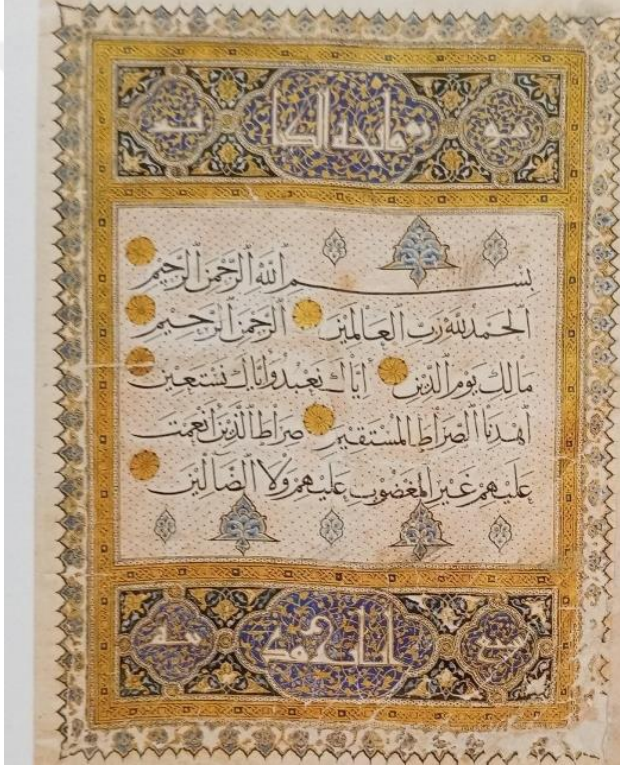 سورة فاتحة الكتاب
بسم ٱللَّه ٱلرَّحمن ٱلرَّحيم
ٱلحمد لله ربّ ٱلعالمين ٱلرَّحمن ٱلرَّحيم
مالك يوم ٱلدّين إيّاك نعبد وإيّاك نستعين
ٱهدنا ٱلصّراط ٱلمستقيم صراط ٱلّذين أنعمت
عليهم غير ٱلمغضوب عليهم ولا ٱلضّالّين
سبع آيات